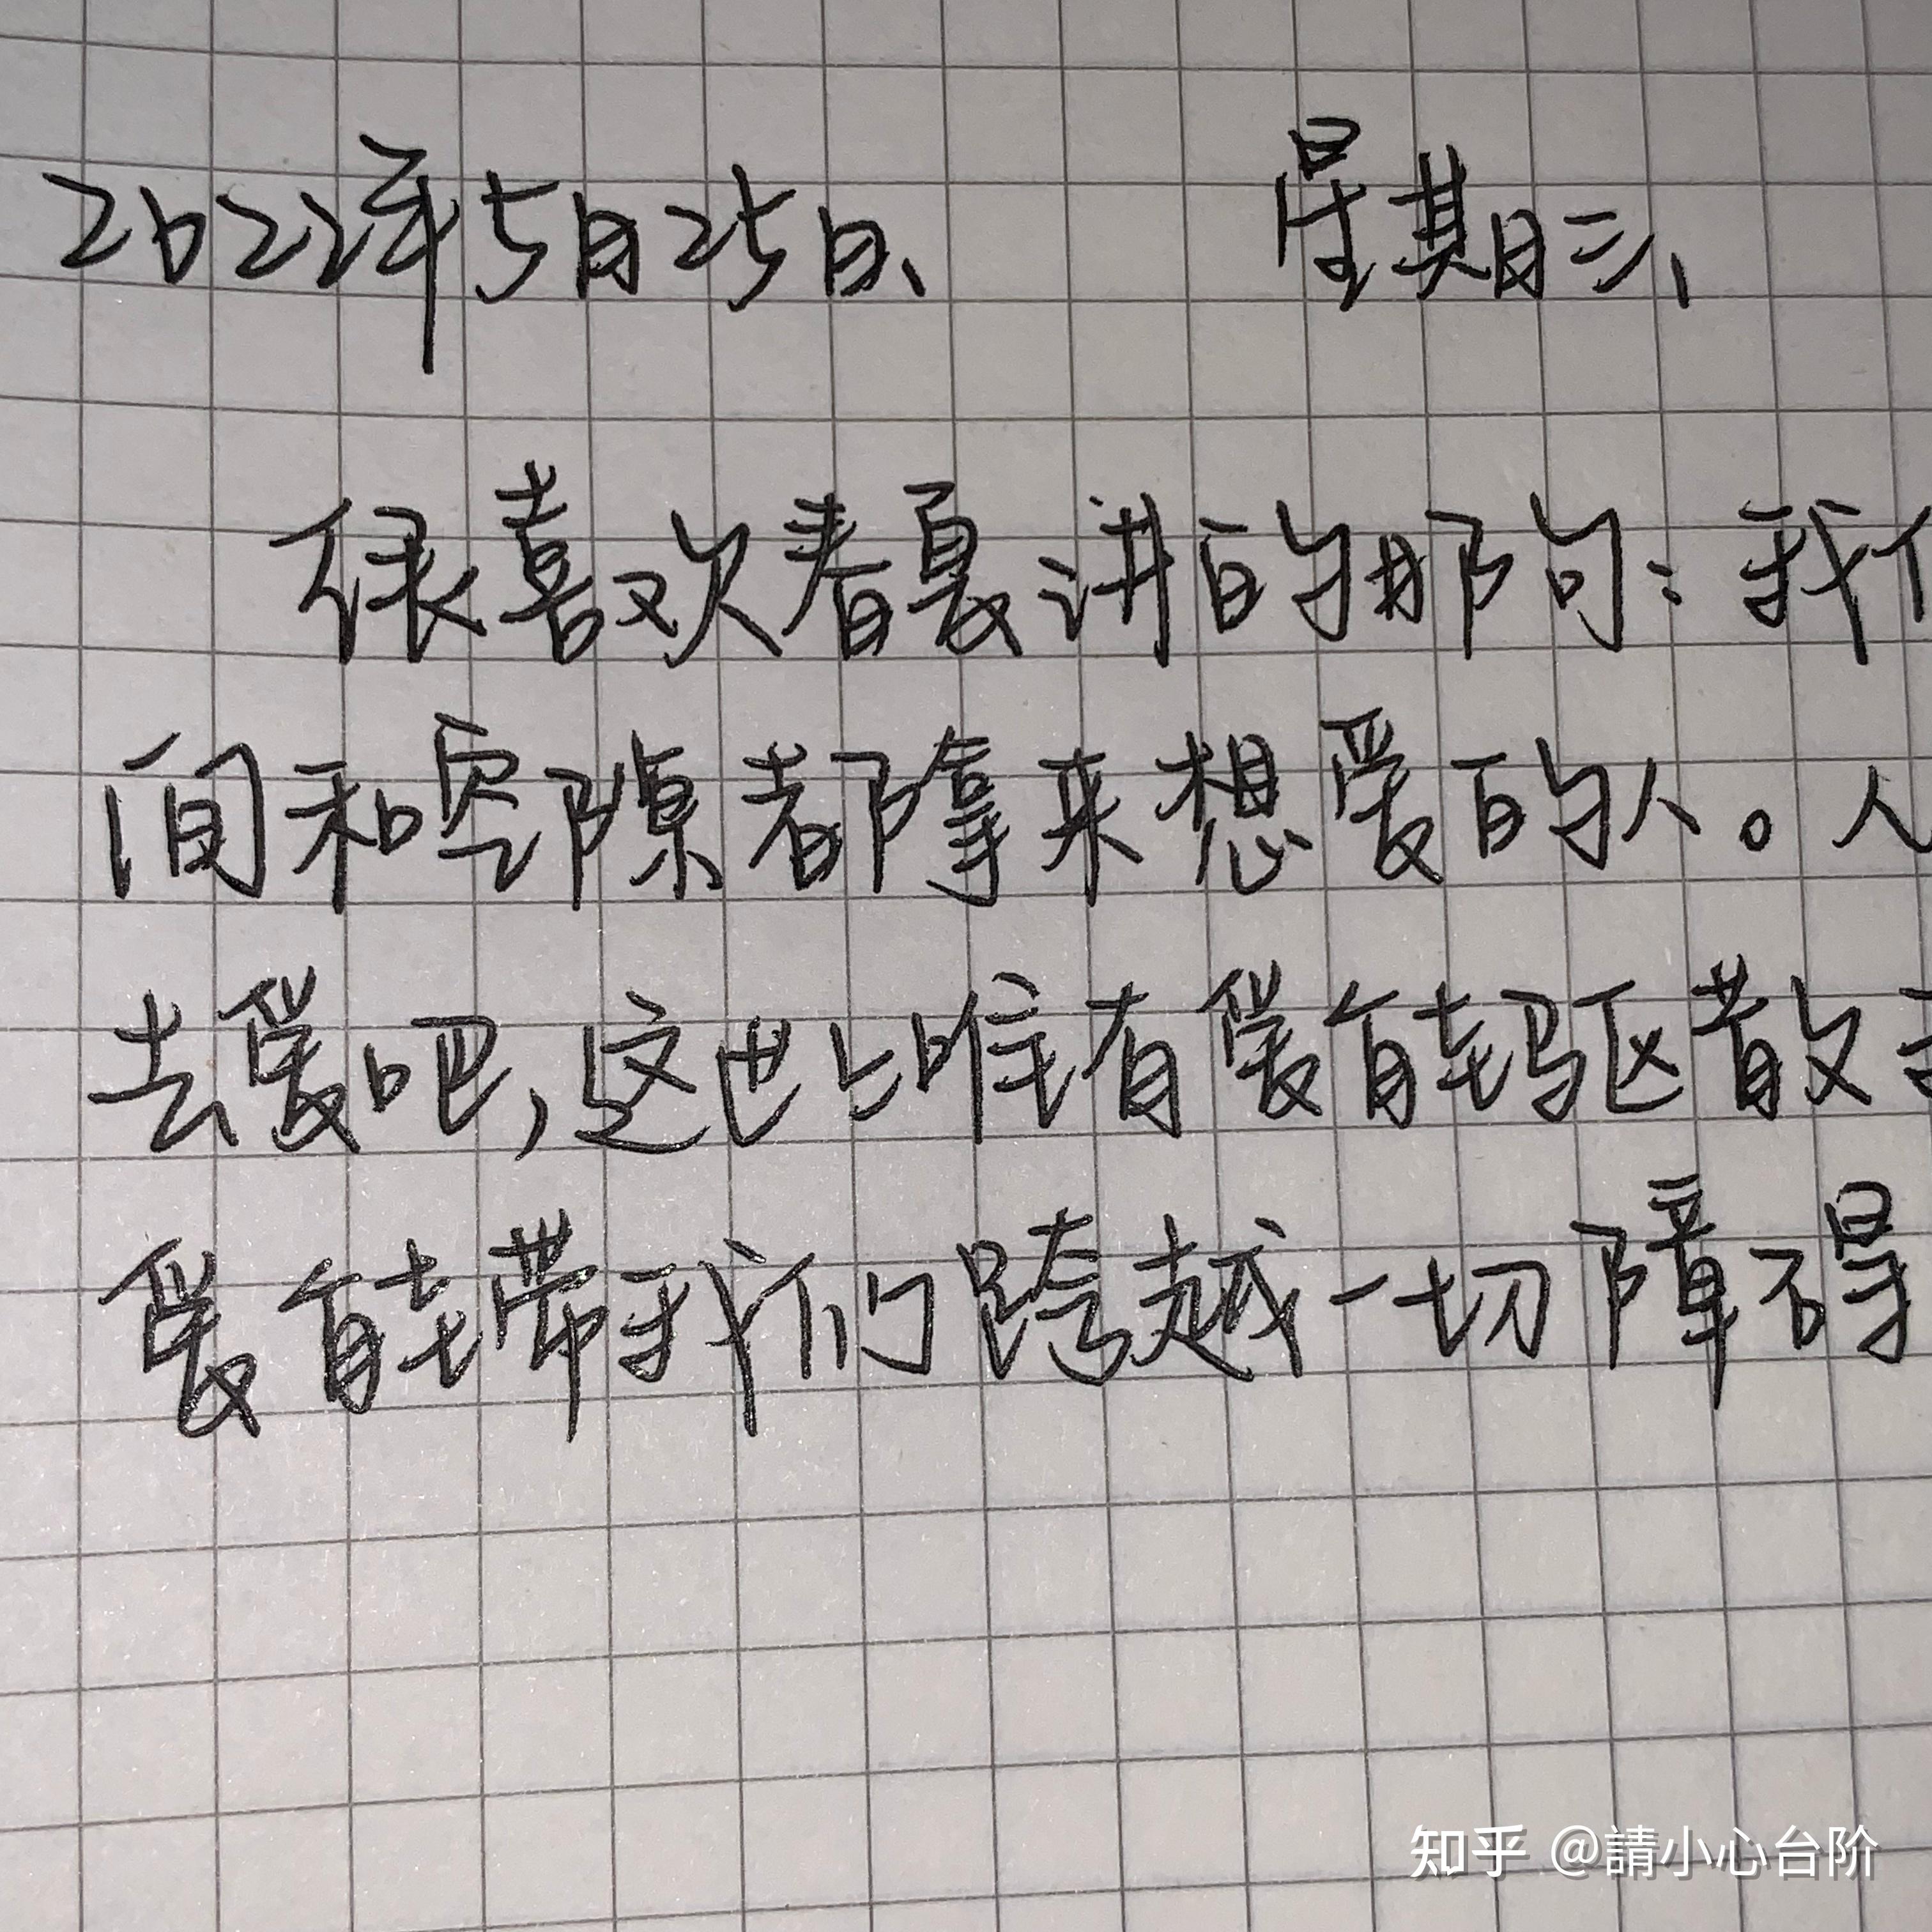 2022年5月25日、 星期三、
很喜欢春夏讲的那句：我们
间和空隙都拿来想爱的人。人
去爱吧，这世上唯有爱能驱散
爱能带我们跨越一切障碍
知乎 @請小心台阶